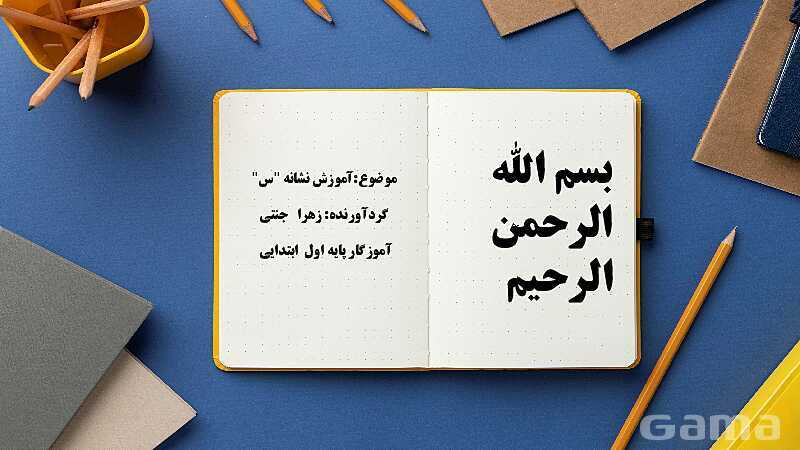 بسم الله
الرحمن
الرحیم
موضوع:آموزش نشانه "س"
گردآورنده: زهرا جنتی
آموزگار پایه اول ابتدایی
Gama